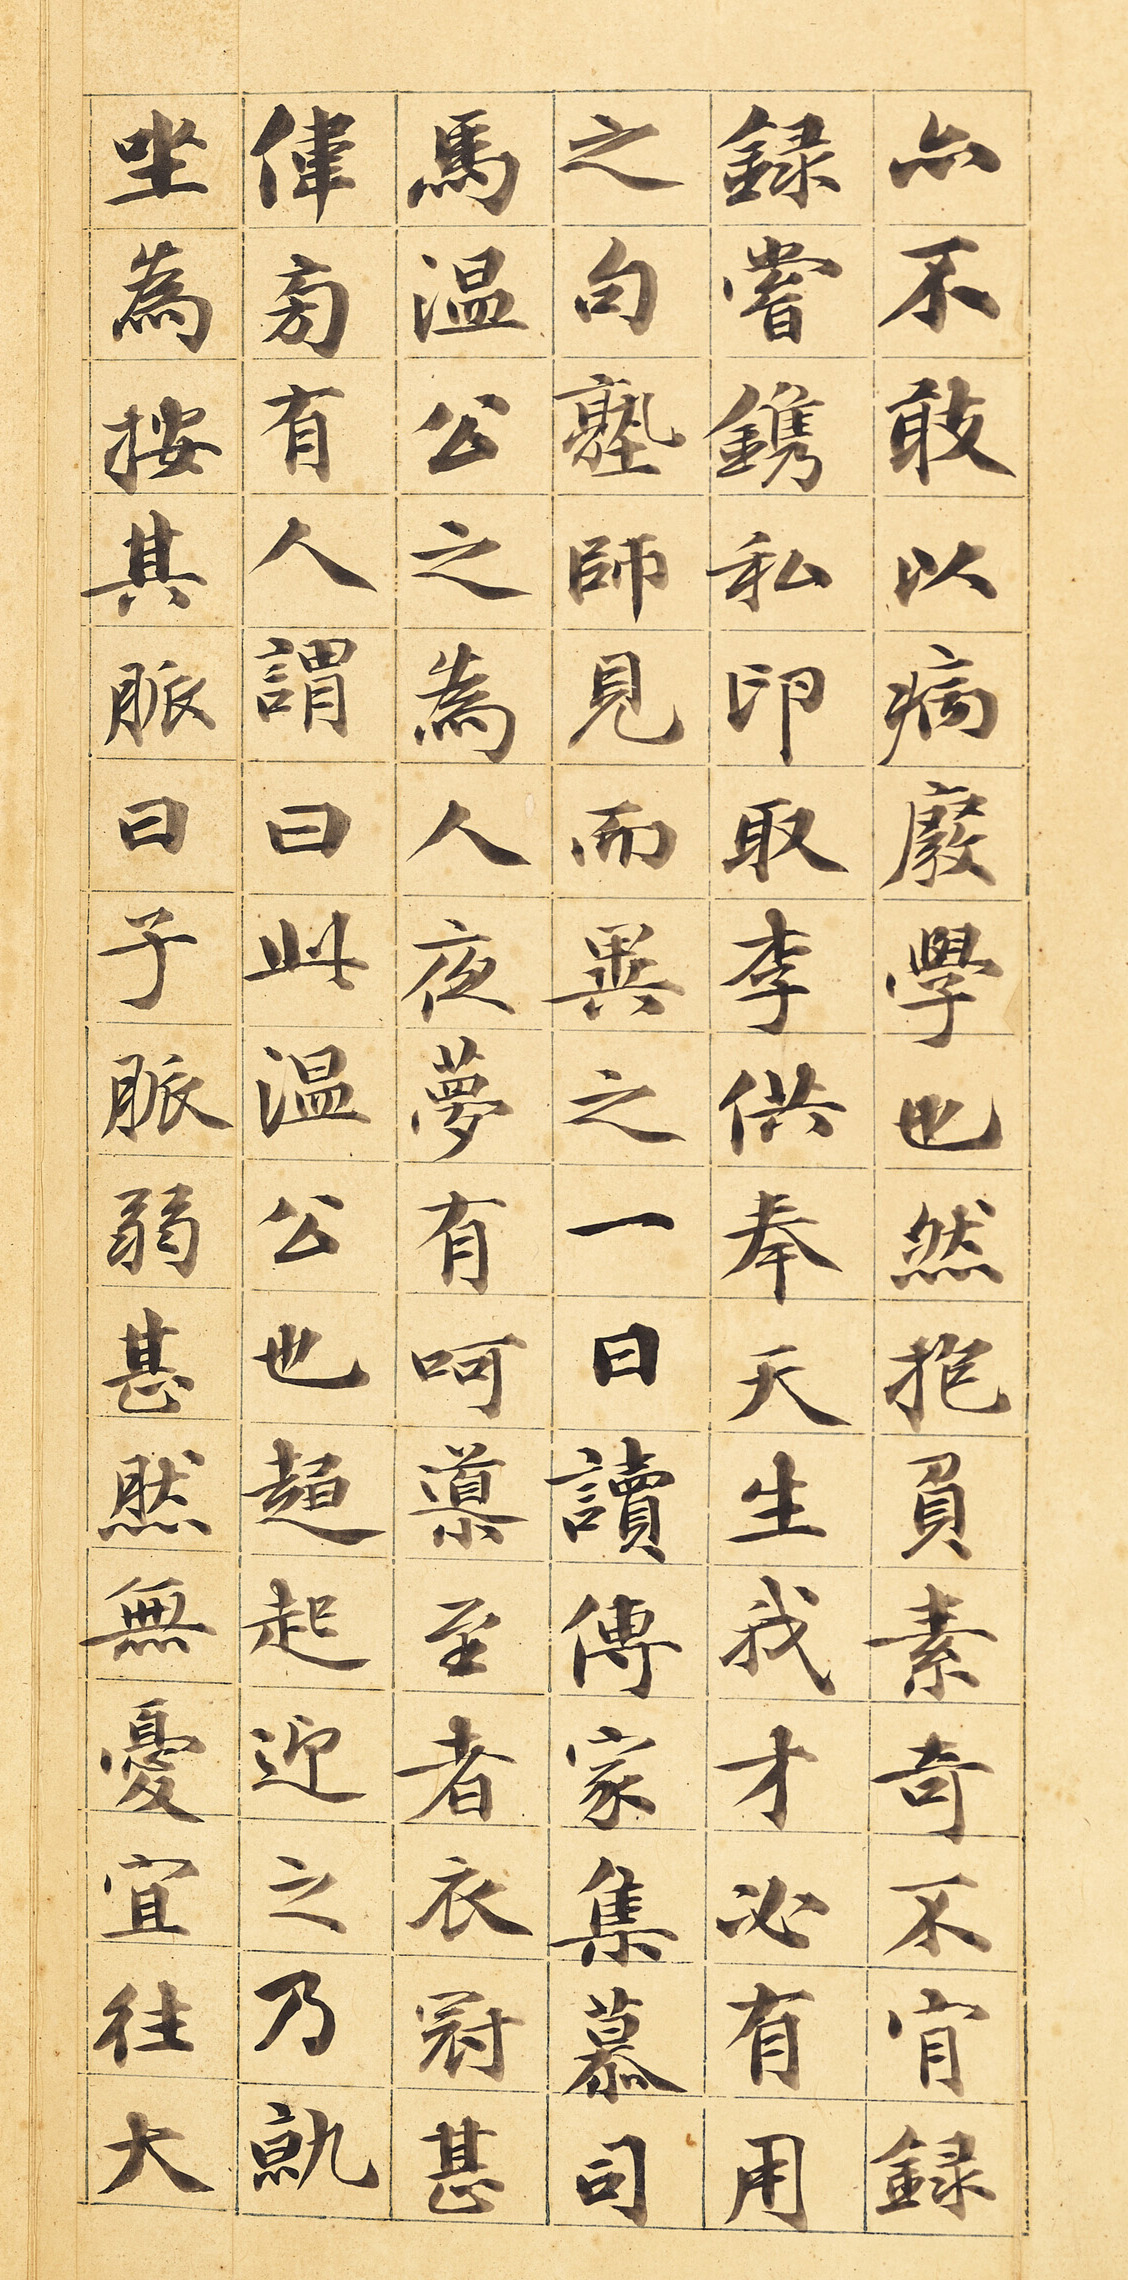 亦不敢以病廢學也然抱負素奇不肯録
録嘗鐫私印取李供奉天生我才必有用
之句塾師見而異之一日讀傳家集慕司
馬温公之為人夜夢有呵導至者衣冠甚
偉旁有人謂曰此温公也趨起迎之乃就
坐為按其脈曰子脈弱甚然無憂宜往大